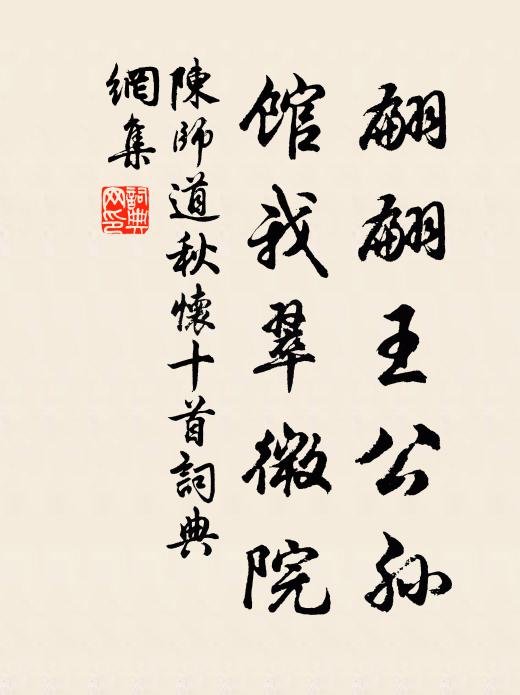 翩翩王公孫
館我翠微院
陳師道秋懷十首詞典
網集
詞典網印